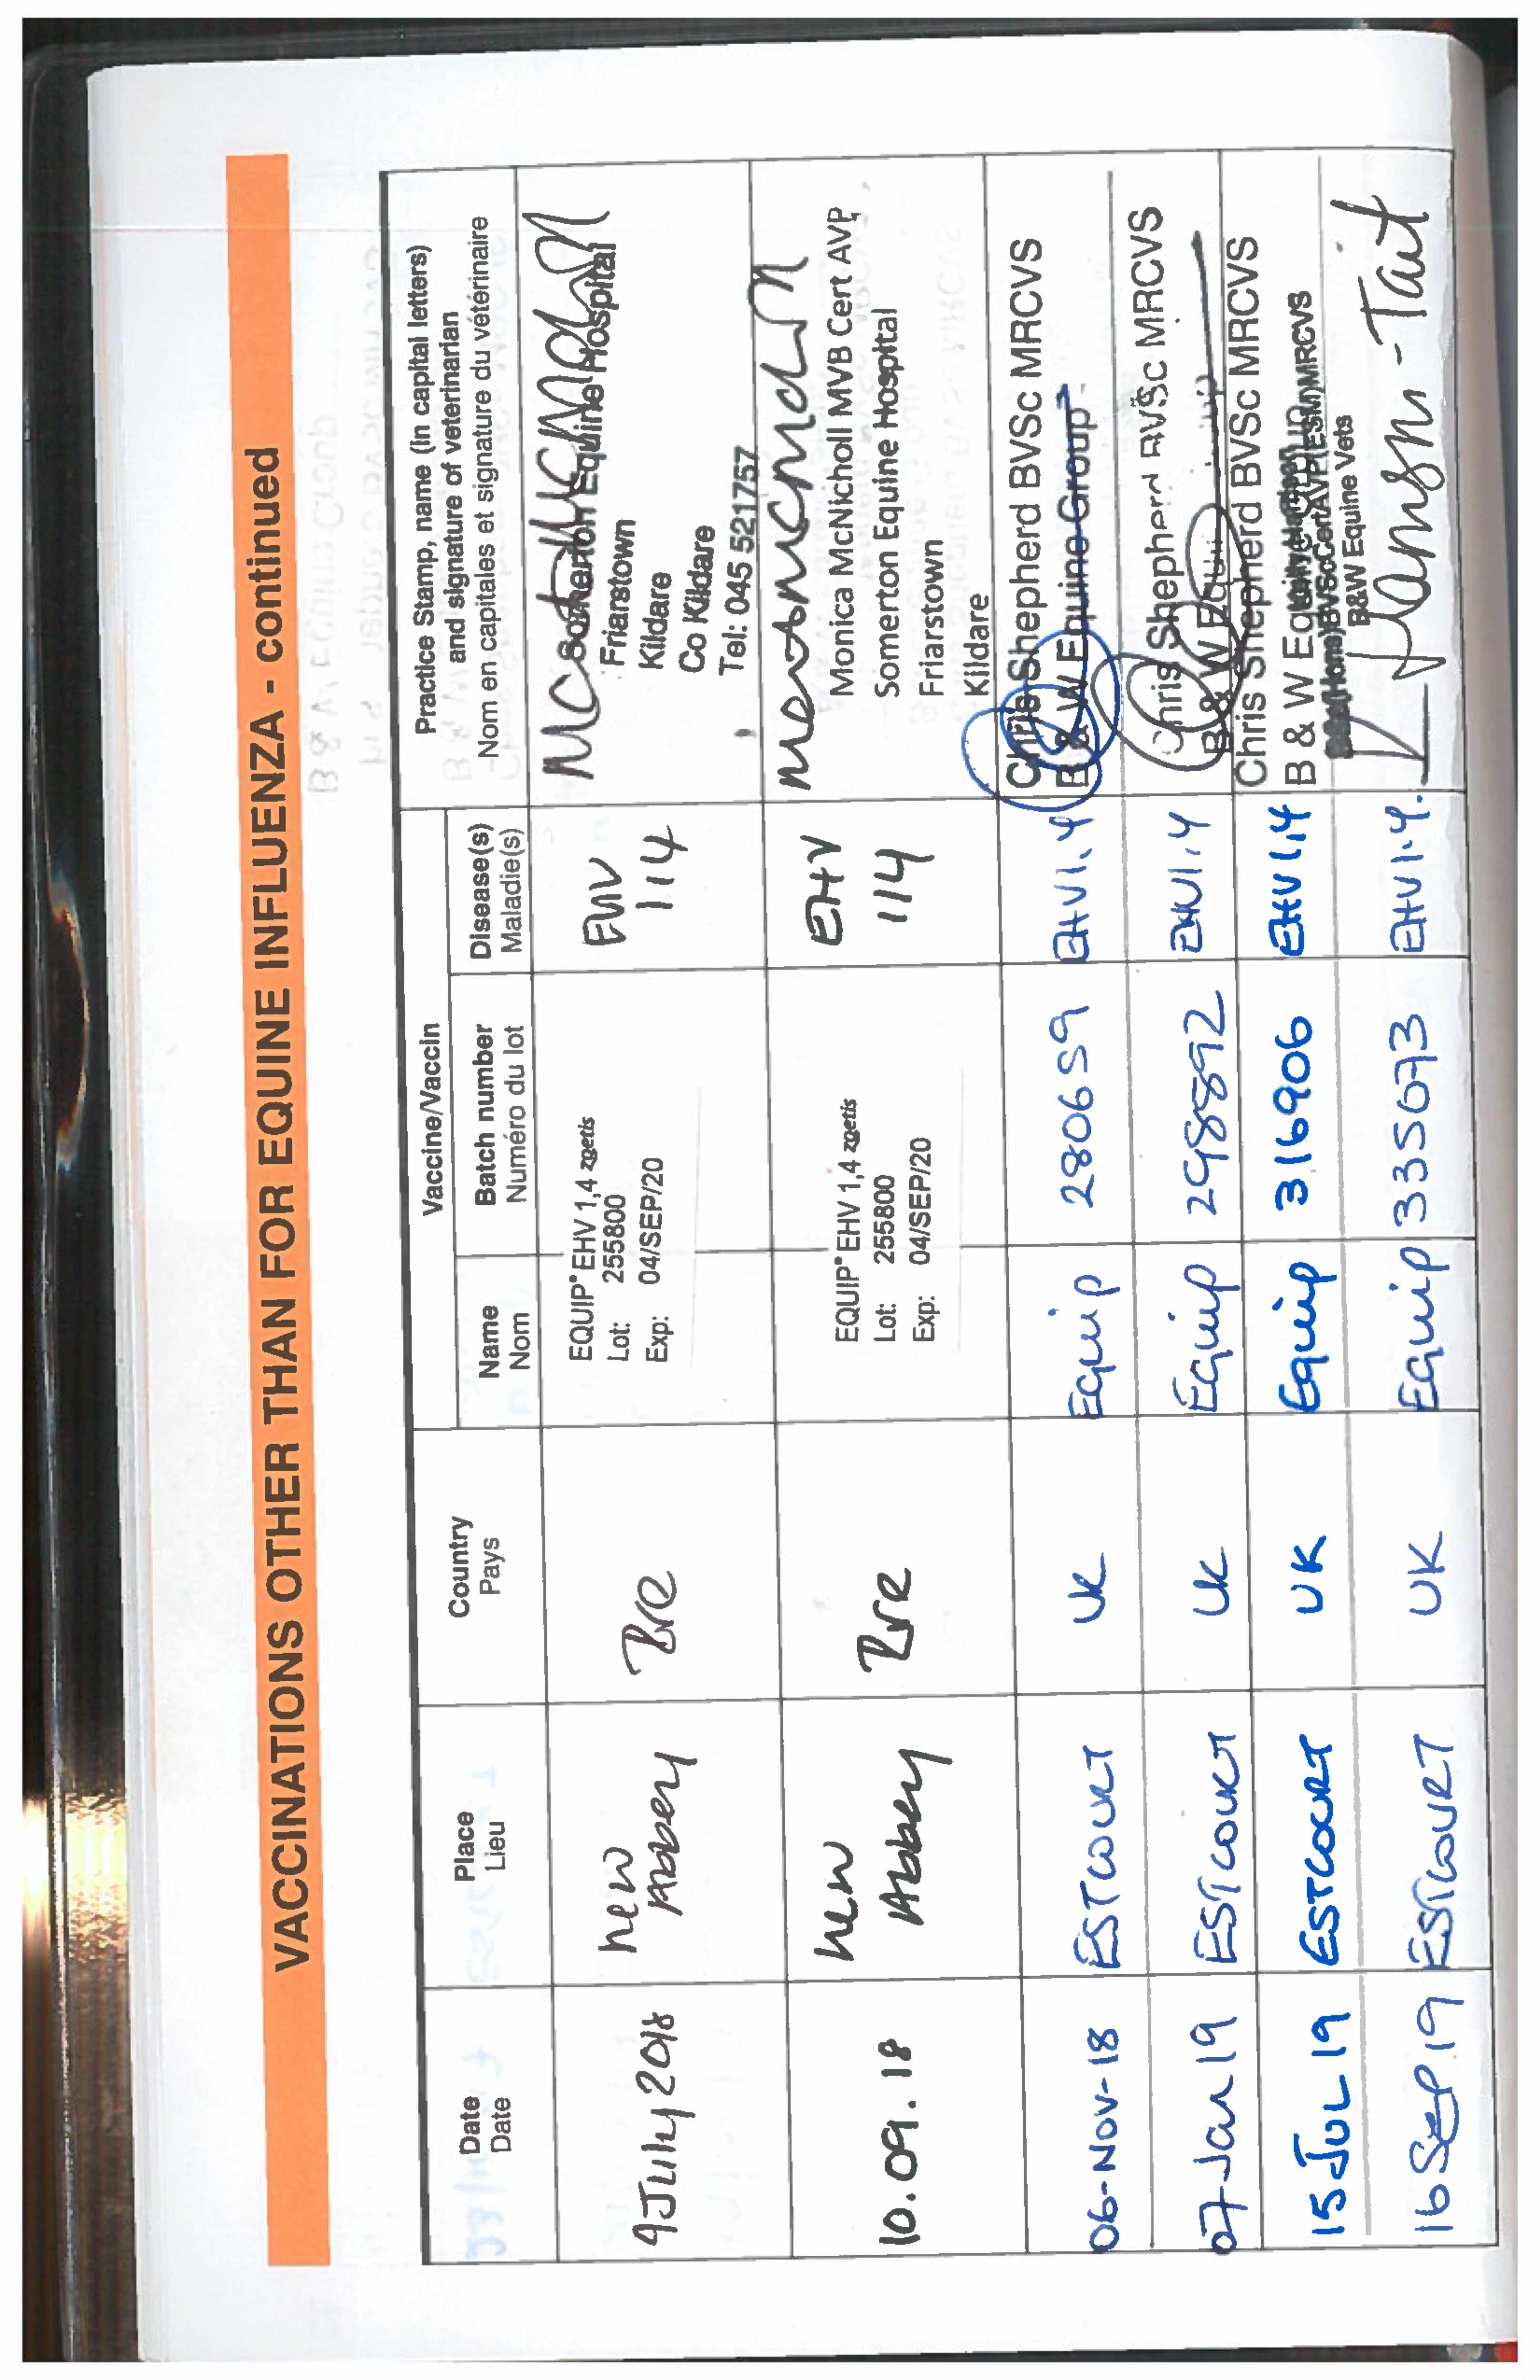 VACCINATIONS OTHER THAN FOR EQUINE INFLUENZA - continued
Date
Date
Place
Lieu
Country
Pays
Vaccine/Vaccin
Name
Nom
Batch number
Numéro du lot
Disease(s)
Maladie(s)
Practice Stamp, name (in capital letters)
and signature of veterinarian
Nom en capitales et signature du vétérinaire
9 July 2018
new
Abbey
Ire
EQUIP EHV 1,4 zoetis
Lot: 255800
Exp: 04/SEP/20
EHV
1,4
Somerton Equine Hospital
Friarstown
Kildare
Co Kildare
Tel: 045 521757
10.09.18
new
Abbey
Ire
EQUIP EHV 1,4 zoetis
Lot: 255800
Exp: 04/SEP/20
EHV
1,4
Monica McNicholl MVB Cert AVP
Somerton Equine Hospital
Friarstown
Kildare
06-NOV-18 ESTCOURT UK Equip 280659 EHV1,4
Chris Shepherd BVSc MRCVS
B & W Equine Group
07-Jan 19 ESTCOURT UK Equip 298892 EHV1,4
Chris Shepherd BVSc MRCVS
B & W Equine
15 JUL 19 ESTCOURT UK Equip 316906 EHV1,4
Chris Shepherd BVSc MRCVS
B & W Equine Group
16 SEP 19 ESTCOURT UK Equip 335073 EHV1,4.
BVSc CertAVP(ESM)MRCVS
B&W Equine Vets